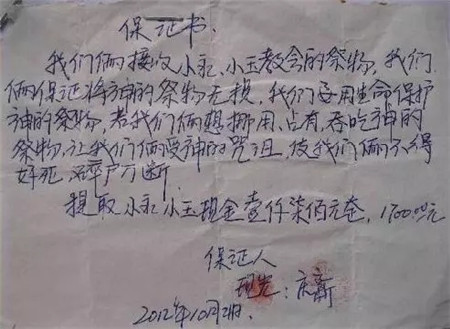 保证书
我们俩接收小永、小玉教会的祭物，我们
俩保证将神的祭物无损，我们要用生命保护
神的祭物，若我们俩想挪用、占有、吞吃神的
祭物，让我们俩受神的咒诅，使我们俩不得
好死，不断
提取小永小玉现金壹仟柒佰元整，1700.00元
保证人
2012年10月2日